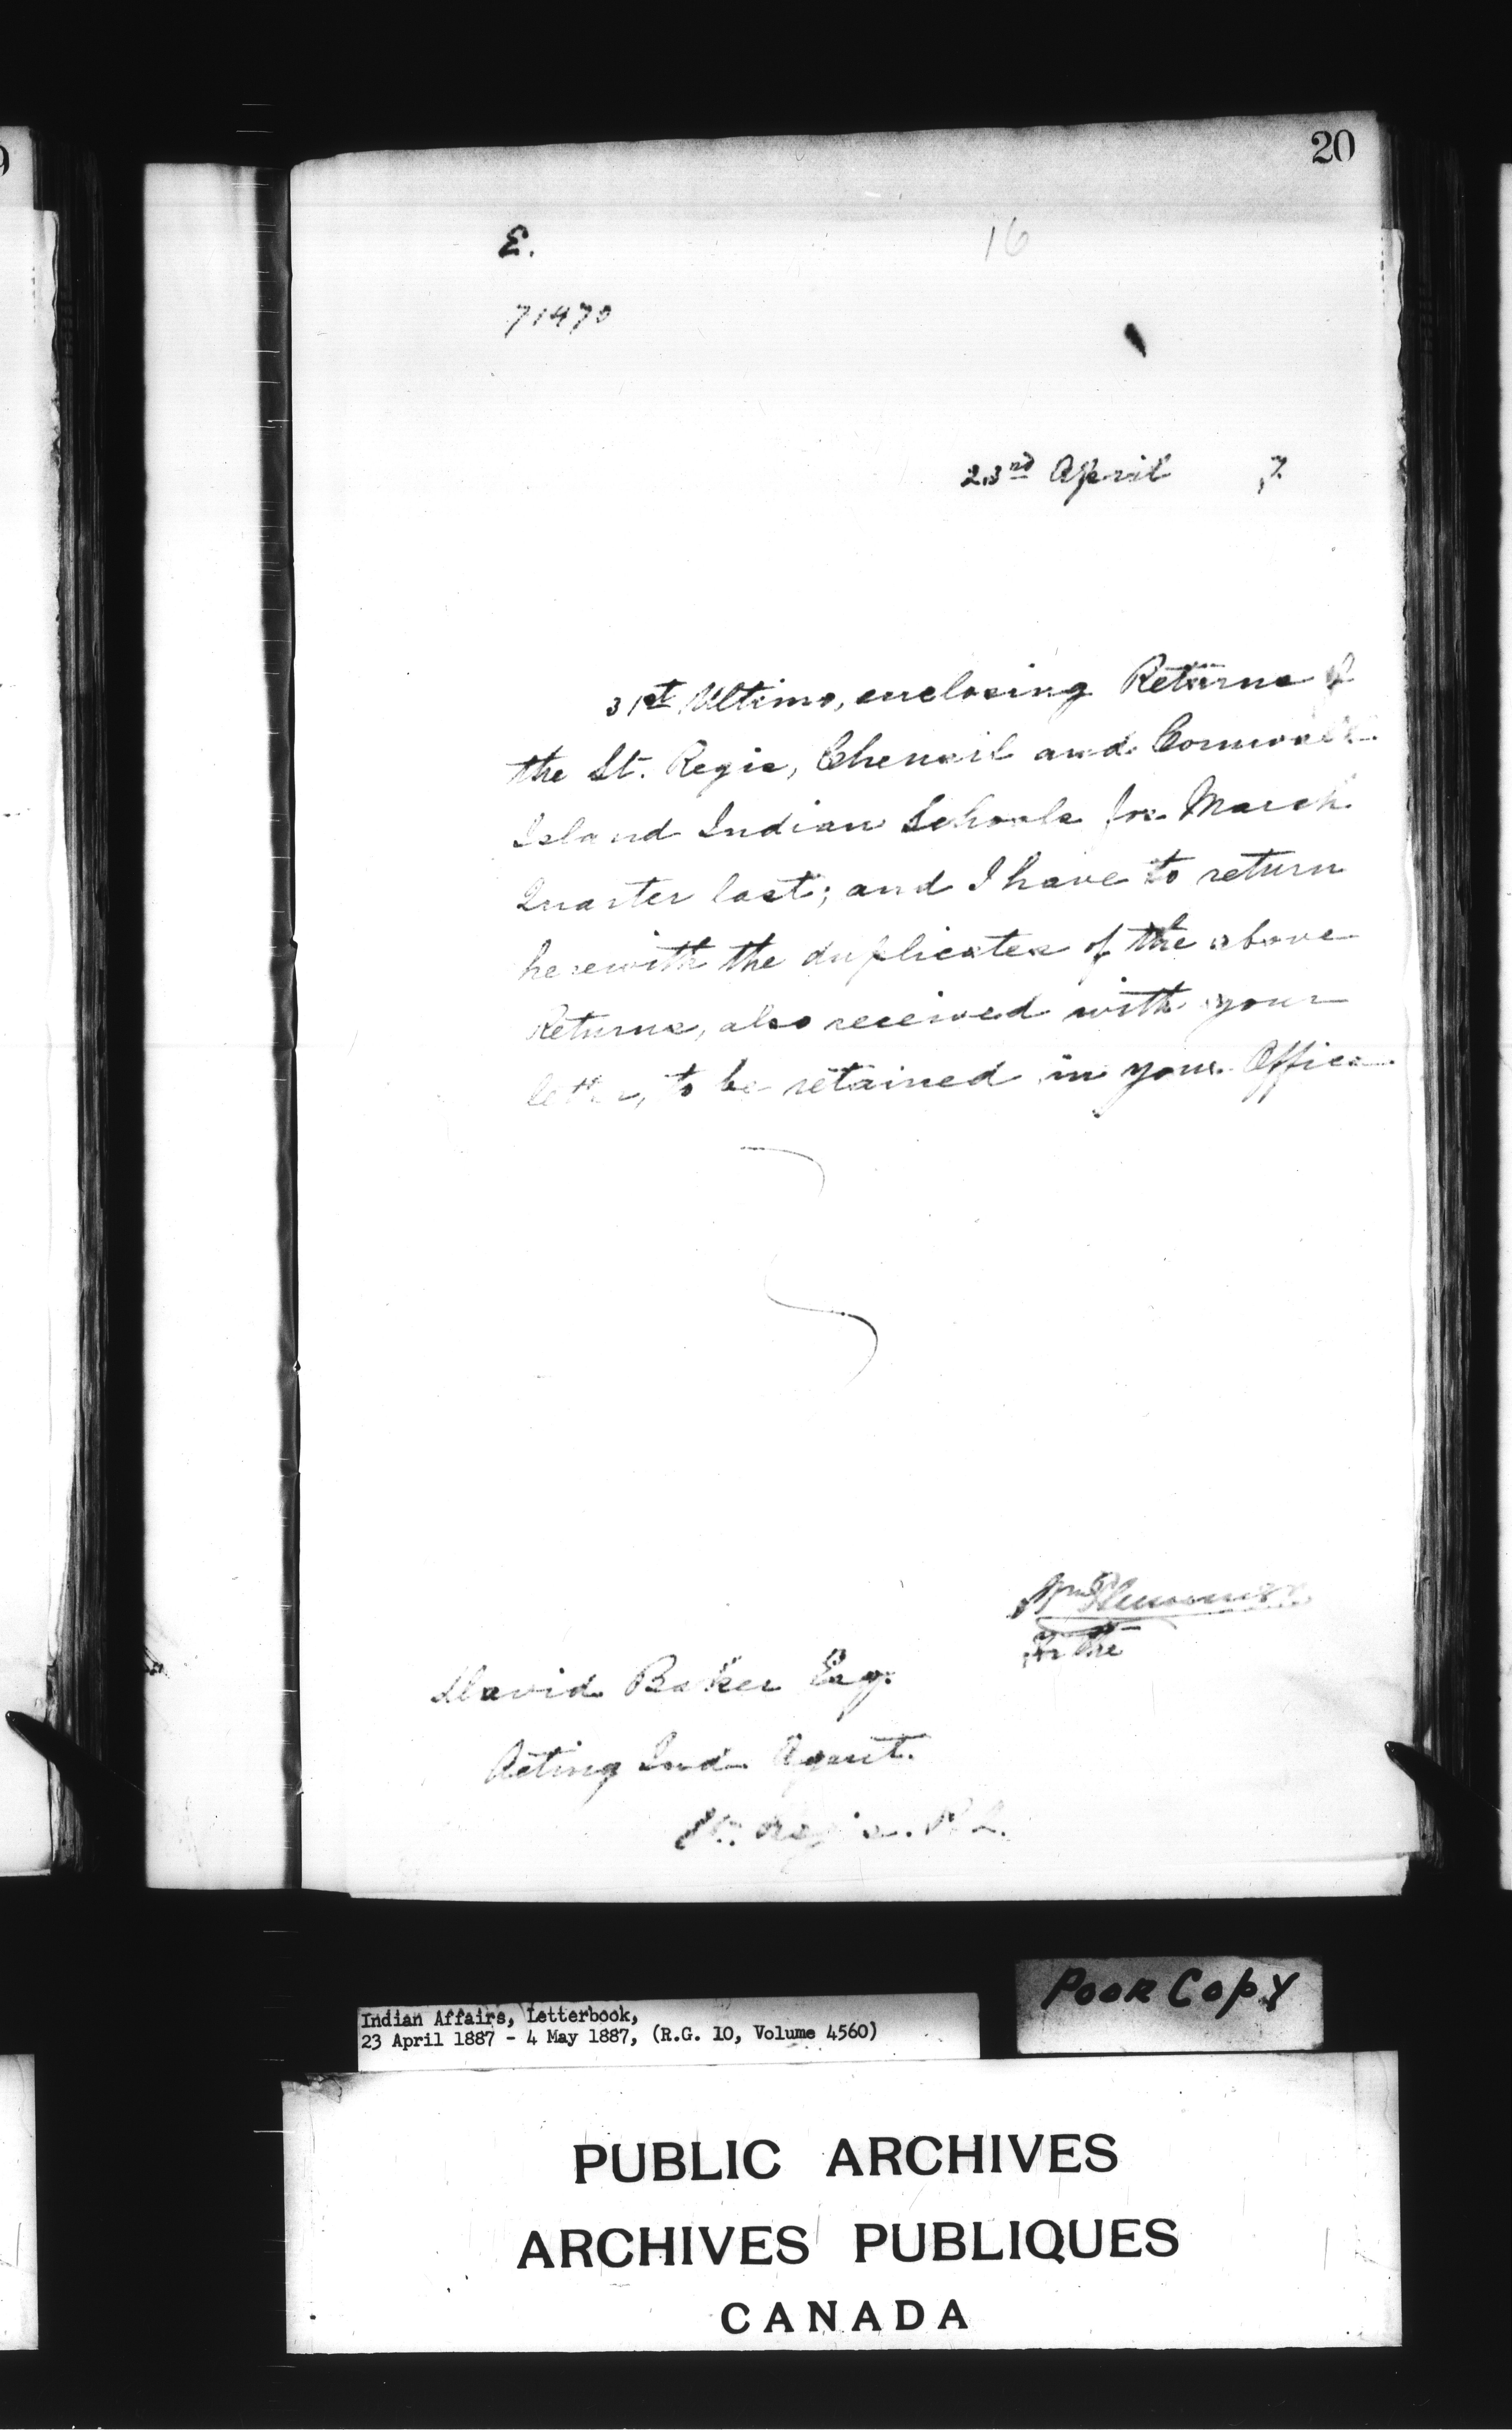 20
16
E.
71470
23rd April 7.
31st Ultimo, enclosing Returns of
the St. Regis, Chenail and Cornwall
Island Indian Schools for March
Quarter last; and I have to return
herewith the duplicates of the above
Returns, also received with your
letter, to be retained in your Office.
Wm Plummer
for the
David Baker Esq.
Acting Ind. Agent.
St. Regis. P.Q.
Poor Copy
Indian Affairs, Letterbook,
23 April 1887 - 4 May 1887, (R.G. 10, Volume 4560)
PUBLIC ARCHIVES
ARCHIVES PUBLIQUES
CANADA